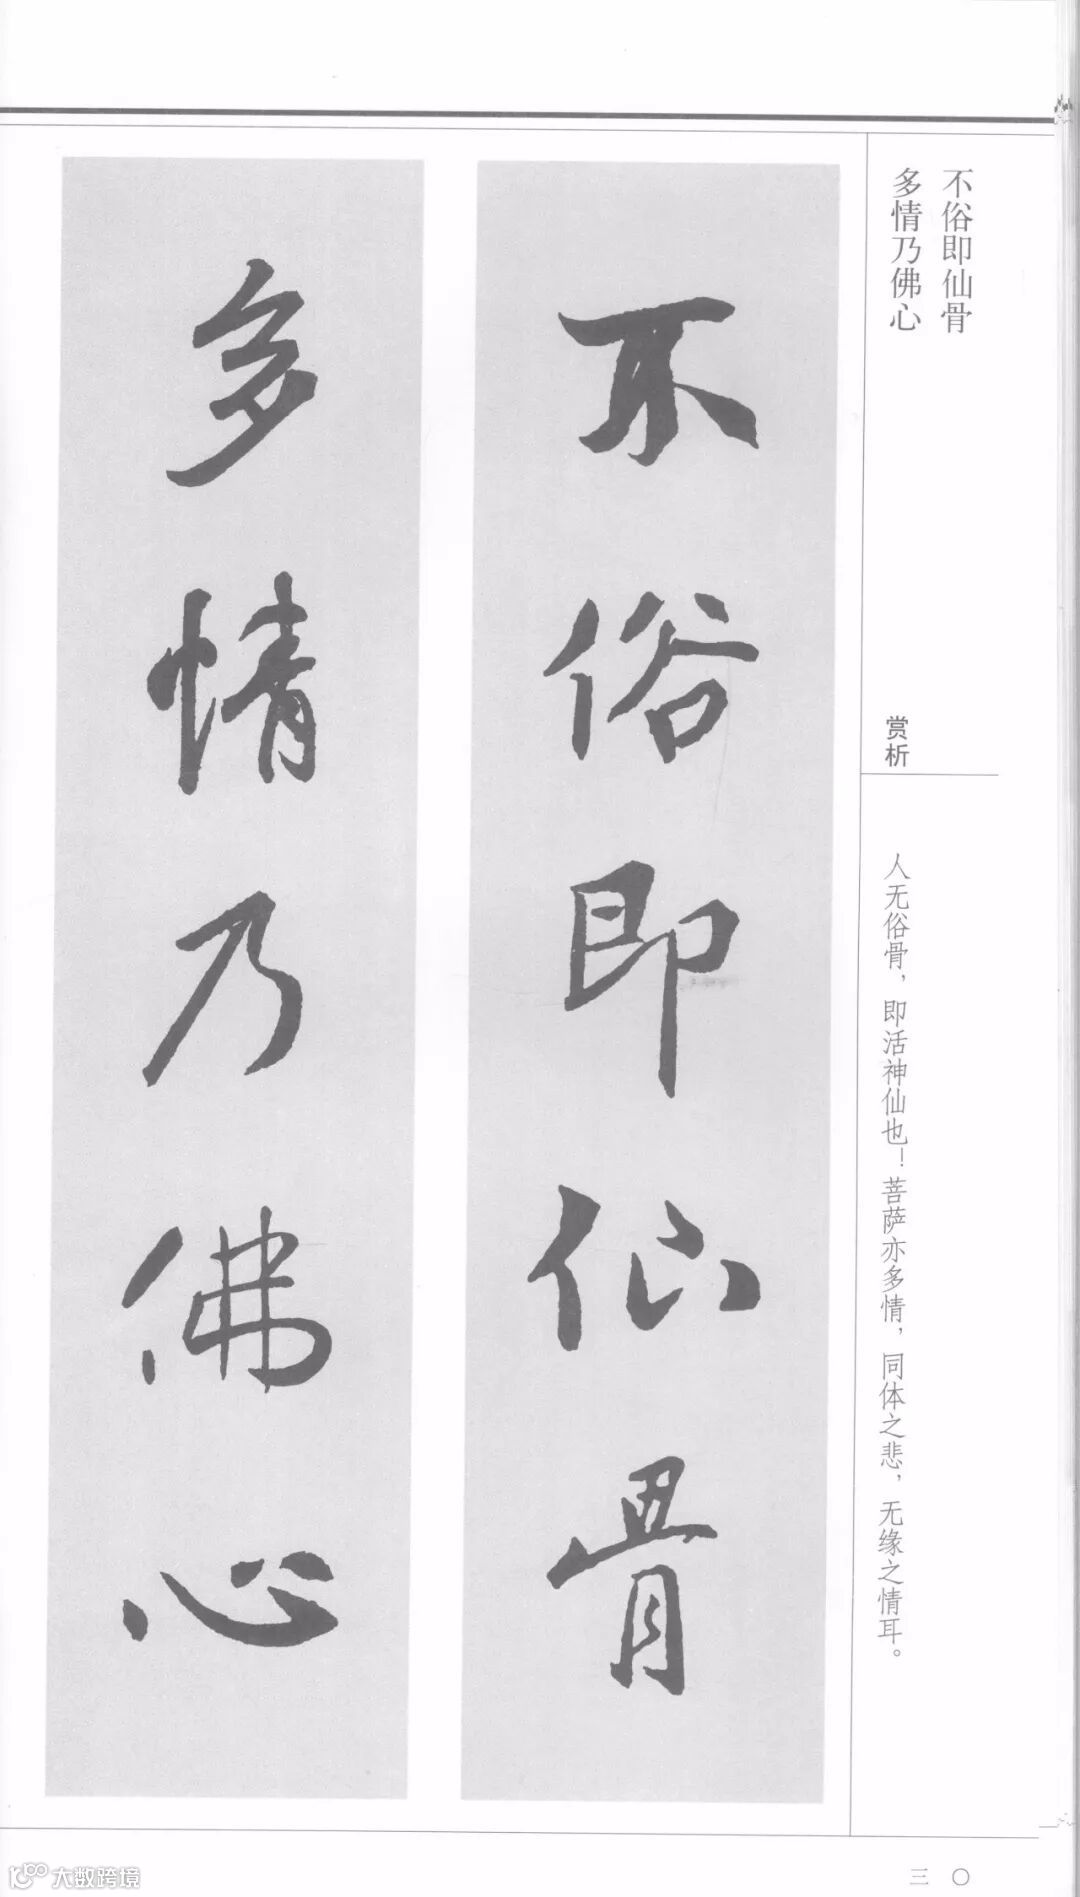 不俗即仙骨
多情乃佛心
赏析
人无俗骨，即活神仙也！菩萨亦多情，同体之悲，无缘之情耳。
不俗即仙骨
多情乃佛心
三〇
大数跨境